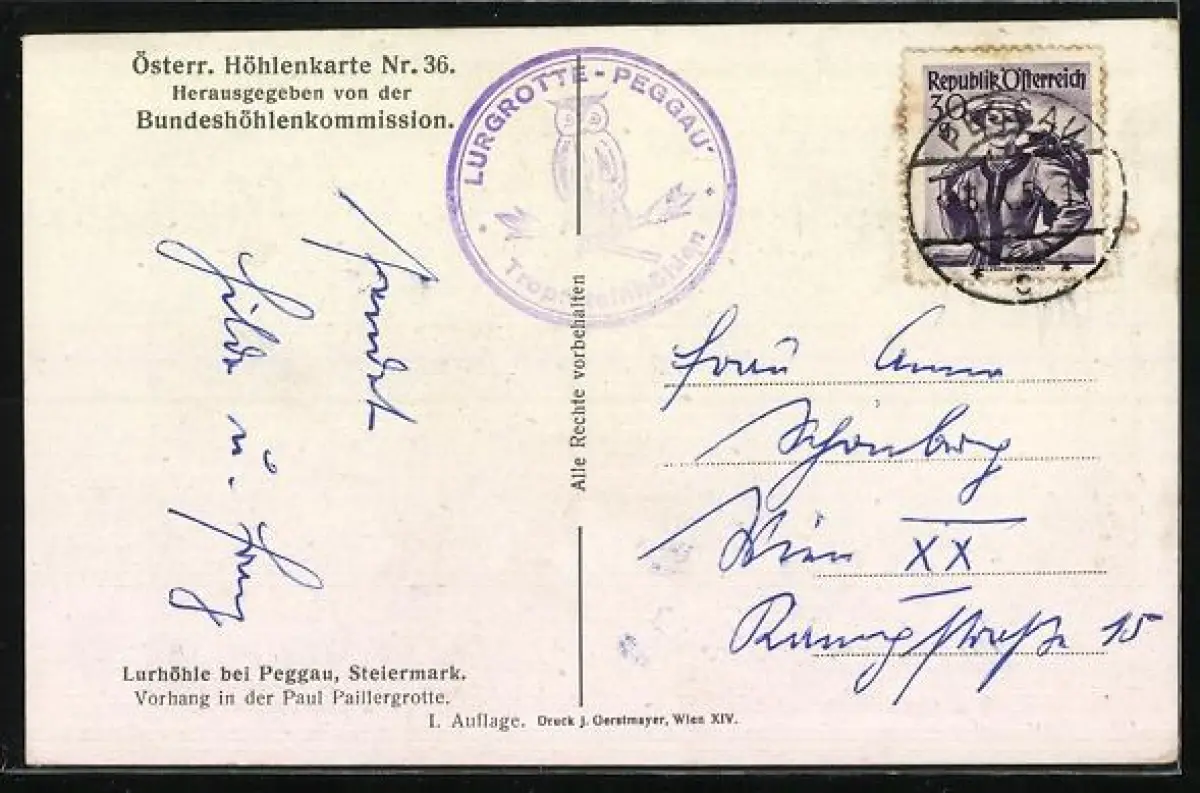 Österr. Höhlenkarte Nr. 36.
Herausgegeben von der
Bundeshöhlenkommission.
LURGROTTE - PEGGAU
Tropfsteinhöhlen
Republik Österreich
30
PEGGAU
Alle Rechte vorbehalten
sendet
Hilde u.
Frau Anna
Schönberg
Wien XX
straße 15
Lurhöhle bei Peggau, Steiermark.
Vorhang in der Paul Paillergrotte.
I. Auflage. Druck J. Gerstmayer, Wien XIV.